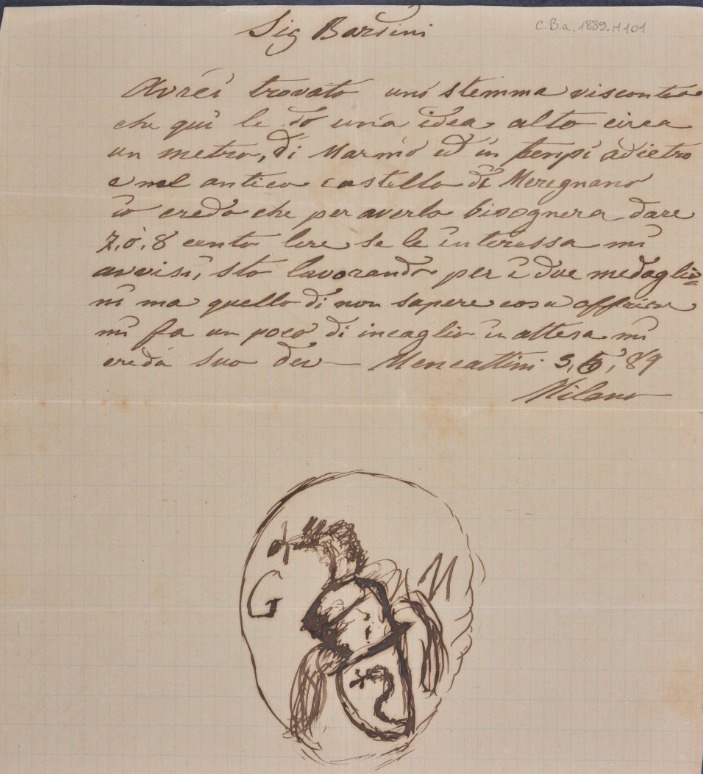 Sig Barsini
C.B.a. 1889.M101
Avrèi trovato uno stemma visconteo
che qui le do una idea, alto circa
un metro, di Marmo ed in tempi adietro
e nel antico castello di Meregnano
io credo che per averlo bisognera dare
7, o, 8 cento lire se le interessa mi
avvisi, sto lavorando per i due medaglio=
ni ma quello di non sapere cosa offrire
mi fa un poco di incaglio in attesa mi
creda suo dev— Mencattini 3, 5, 89
Milano
G M